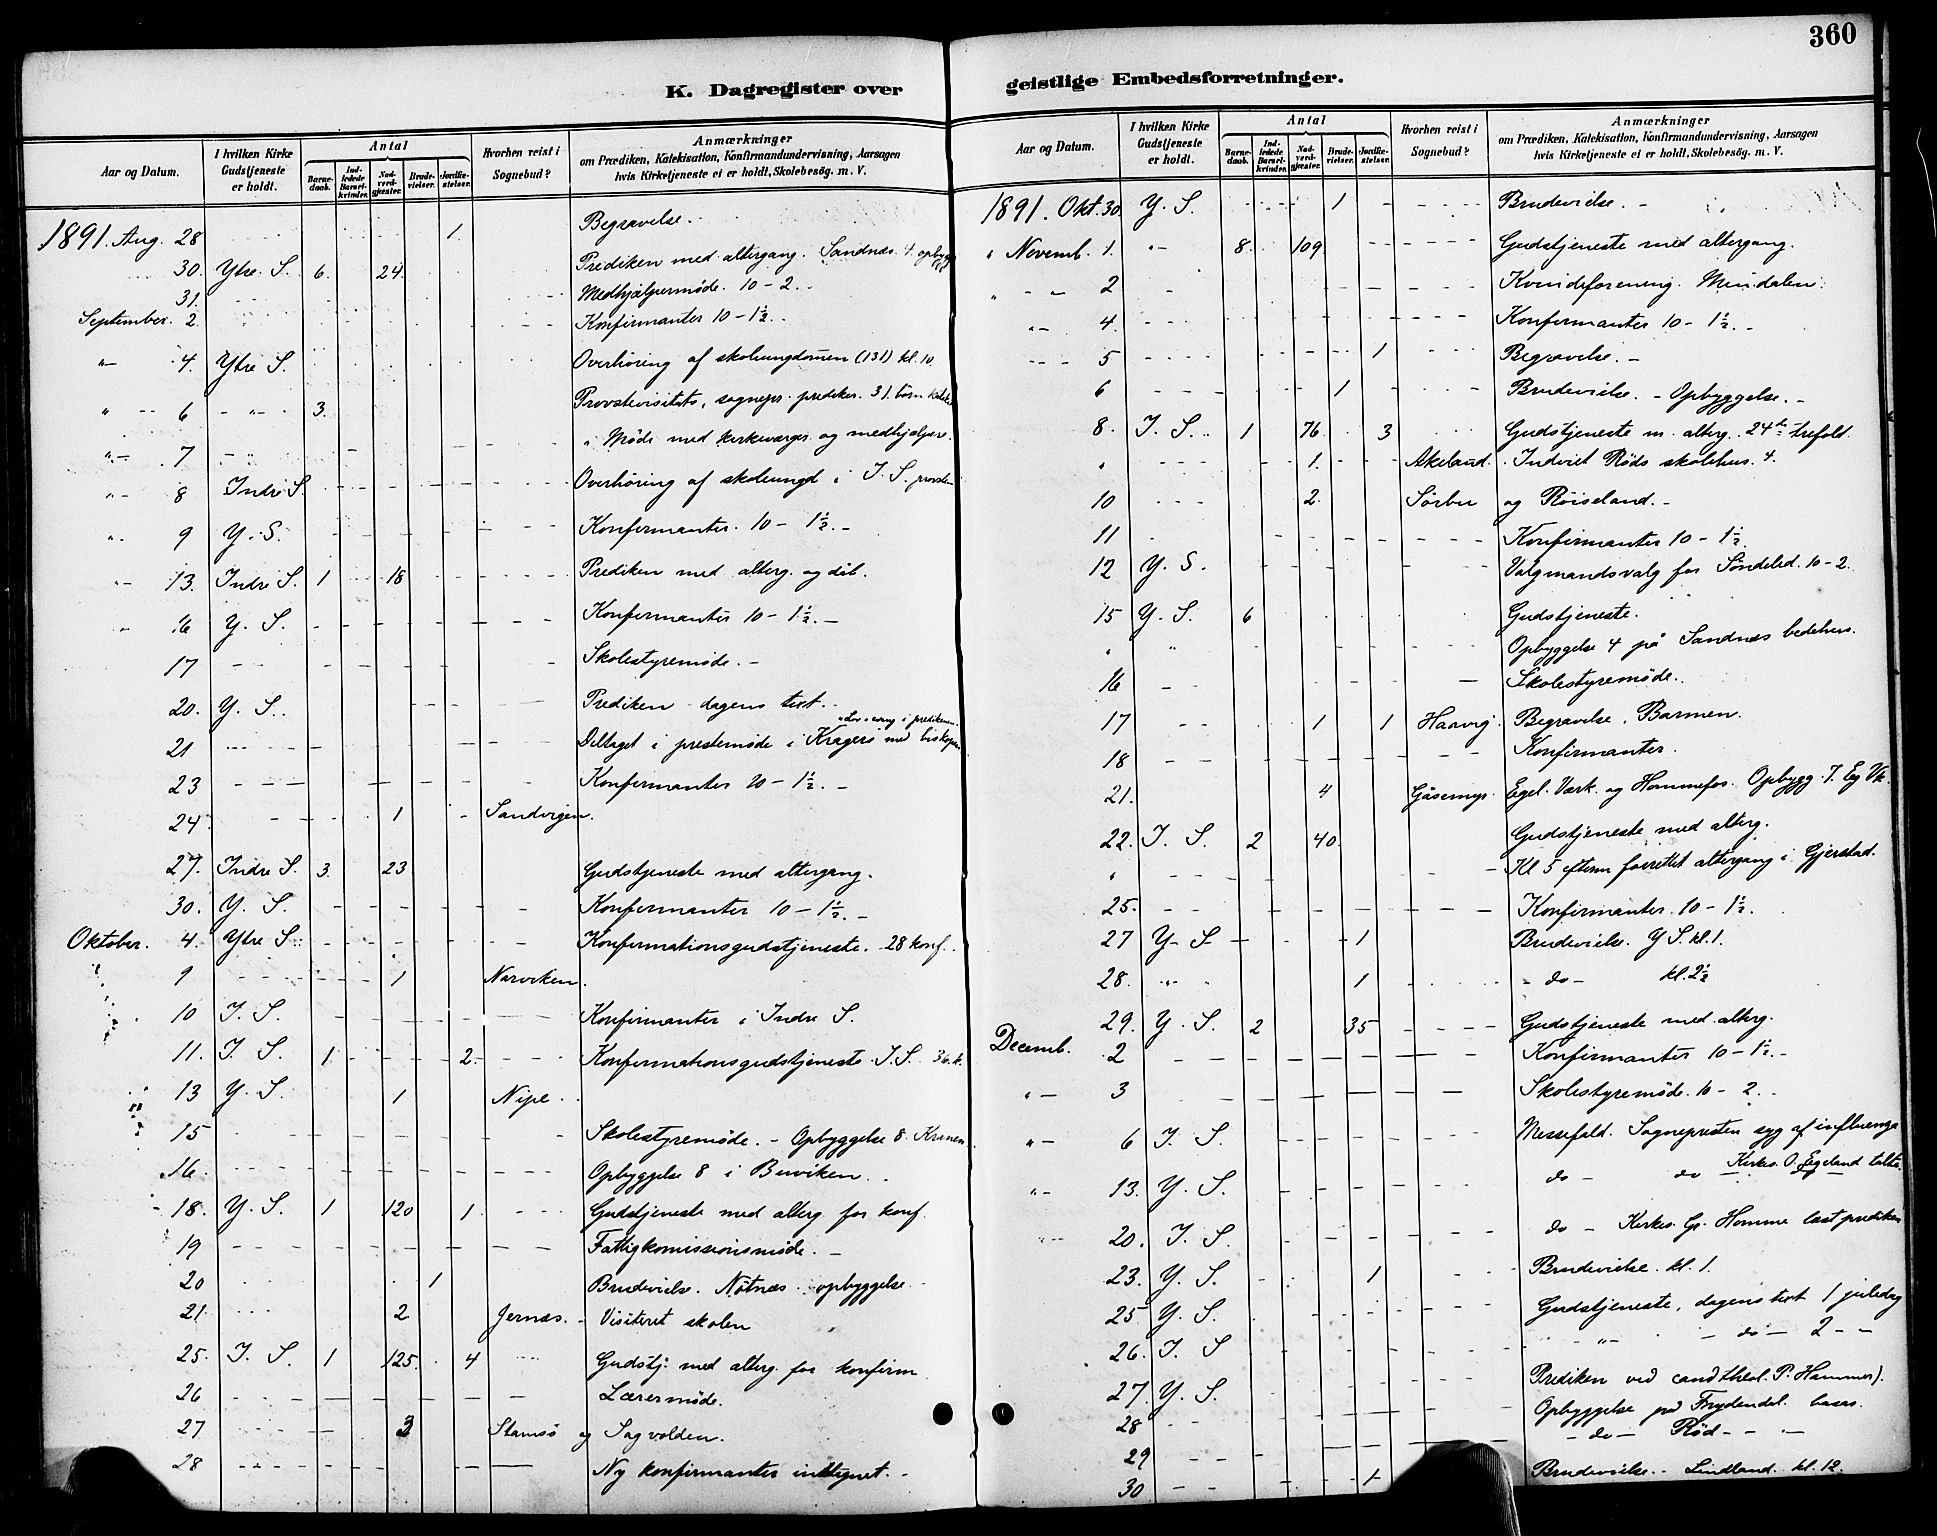 360
K. Dagregister over
geistlige Embedsforretninger.
Aar og Datum.
I hvilken Kirke Gudstjeneste er holdt.
Antal
Barnedaab.
Indledede Barselkvinder.
Nadverdgjester.
Brudevielser.
Jordfæstelser.
Hvorhen reist i Sognebud?
Anmærkninger
om Prædiken, Katekisation, Konfirmandundervisning, Aarsagen
hvis Kirketjeneste ei er holdt, Skolebesög. m. V.
1891. Aug. 28 1. Begravelse.
30. Ytre. S. 6. 24. Prediken med altergang. Sandnæs. 4. opbygg
31. Medhjælpermøde. 10-2.
September. 2. Konfirmanter 10-1½.
"- 4. Ytre S. Overhøring af skoleungdomen (131) kl. 10.
"-- 6 -"- 3. Provstevisitats, sognepr. prediker. 31. børn
"- 7 -"- Møde med kirkeværger og medhjælpere.
"- 8 Indre S. Overhøring af skoleungd i I. S.
". 9 Y. S. Konfirmanter. 10-1½.-
"- 13. Indre S. 1 18 Prediken med alterg. og dåb.
16 Y. S. Konfirmanter 10-1½.-
17 Skolestyremøde.-
20. Y. S. Prediken dagens text.
21 Deltaget i prestemøde i Kragerø med biskopen
23 Konfirmanter 10-1½.-
24 1 Sandvigen.
27. Indre S. 3. 23 Gudstjeneste med altergang.
30. Y. S. Konfirmanter 10-1½.-
Oktober. 4. Ytre S. Konfirmationsgudstjeneste. 28 konf.
9 1 Narviken.
10 I. S. Konfirmanter i Indre S.
11. I. S. 1 2. Konfirmationsgudstjeneste I. S. 36. k.
13 Y. S. 1 Nipe.
15 Skolestyremøde. - Opbyggelse 8.
16. Opbyggelse 8 i Buviken.
18. Y. S. 1 120 1. Gudstjeneste med alterg. for konf.
19 Fattigkomissionsmøde.-
20 1 Brudevielse. Nøtnæs opbyggelse
21. 2 Jernæs. - Visiteret skolen
25. I. S. 1 125. 4 Gudstj. med alterg. for konfirm
26 Lærermøde.
27 3 Stamsø og Sagvolden.
28 Ny konfirmanter indtegnet.-
Aar og Datum.
I hvilken Kirke Gudstjeneste er holdt.
Antal
Barnedaab.
Indledede Barselkvinder.
Nadverdgjester.
Brudevielser.
Jordfæstelser.
Hvorhen reist i Sognebud?
Anmærkninger
om Prædiken, Katekisation, Konfirmandundervisning, Aarsagen
hvis Kirketjeneste ei er holdt, Skolebesög. m. V.
1891. Okt. 30. Y. S. 1 Brudevielse.-
" Novemb. 1. "- 8. 109. Gudstjeneste med altergang.
" - " 2 Kvindeforening. Mindalen.
"- 4. Konfirmanter 10-1½.-
5 1 Begravelse.-
6 1 Brudevielse. - Opbyggelse.-
8. I. S. 1 76. 3 Gudstjeneste m. alterg. 24de trefold.
" 1. Akeland. Indviet Røds skolehus. 4.
10 2. Sørbø og Røiseland.-
11 Konfirmanter 10-1½.
12 Y. S. Valgmandsvalg for Søndeled. 10-2.
15 Y. S. 6 Gudstjeneste.
" " Opbyggelse 4 på Sandnæs bedehus.
16 Skolestyremøde.
17 1 1 Haavig. Begravelse. Barmen.
18 Konfirmanter.
21. 4 Gåsemyr. Egel. Værk. og Hommefos. Opbygg. 7. Eg. Vk.
22. I. S. 2 40. Gudstjeneste med alterg.
" - Kl 5 efterm forrettet altergang i Gjerstad.
25. Konfirmanter. 10-1½.
27 Y. S. 1 Brudevielse. Y S. kl. 1.
28. "- 1 - do - kl. 2½
29. Y. S. 2 35 Gudstjeneste med alterg.
Decemb. 2 Konfirmanter 10-1½.-
"- 3 Skolestyremøde. 10-2.
"- 6 I. S. Messefald. Sognepresten syg af influenza
"- 13. Y. S. do - do Kirkes. O. Egeland talte
20. I. S. do - Kirkes. Gr. Homme læst prediken
23. Y. S. 1 Brudevielse. kl. 1.
25 Y. S. Gudstjeneste, dagens text 1 juledag
26. I. S -"- - do - 2 - -
27. Y. S. Prediken ved cand theol. P. Hammer).
28 Opbyggelse på Frydendal.
29 - do - Rød - - -
30 1 Brudevielse.- Lindland. kl. 12.